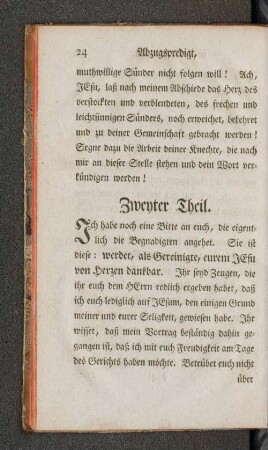 24 Abzugspredigt,
muthwillige Sünder nicht folgen will! Ach,
JEsu, laß nach meinem Abschiede das Herz des
verstockten und verblendeten, des frechen und
leichtsinnigen Sünders, noch erweichet, bekehret
und zu deiner Gemeinschaft gebracht werden!
Segne dazu die Arbeit deiner Knechte, die nach
mir an dieser Stelle stehen und dein Wort ver-
kündigen werden!
Zweyter Theil.
Ich habe noch eine Bitte an euch, die eigent-
lich die Begnadigten angehet. Sie ist
diese: werdet, als Gereinigte, eurem JEsu
von Herzen dankbar. Ihr seyd Zeugen, die
ihr euch dem HErrn redlich ergeben habet, daß
ich euch lediglich auf JEsum, den einigen Grund
meiner und eurer Seligkeit, gewiesen habe. Ihr
wisset, daß mein Vortrag beständig dahin ge-
gangen ist, daß ich mit euch Freudigkeit am Tage
des Gerichts haben möchte. Betrübet euch nicht
über